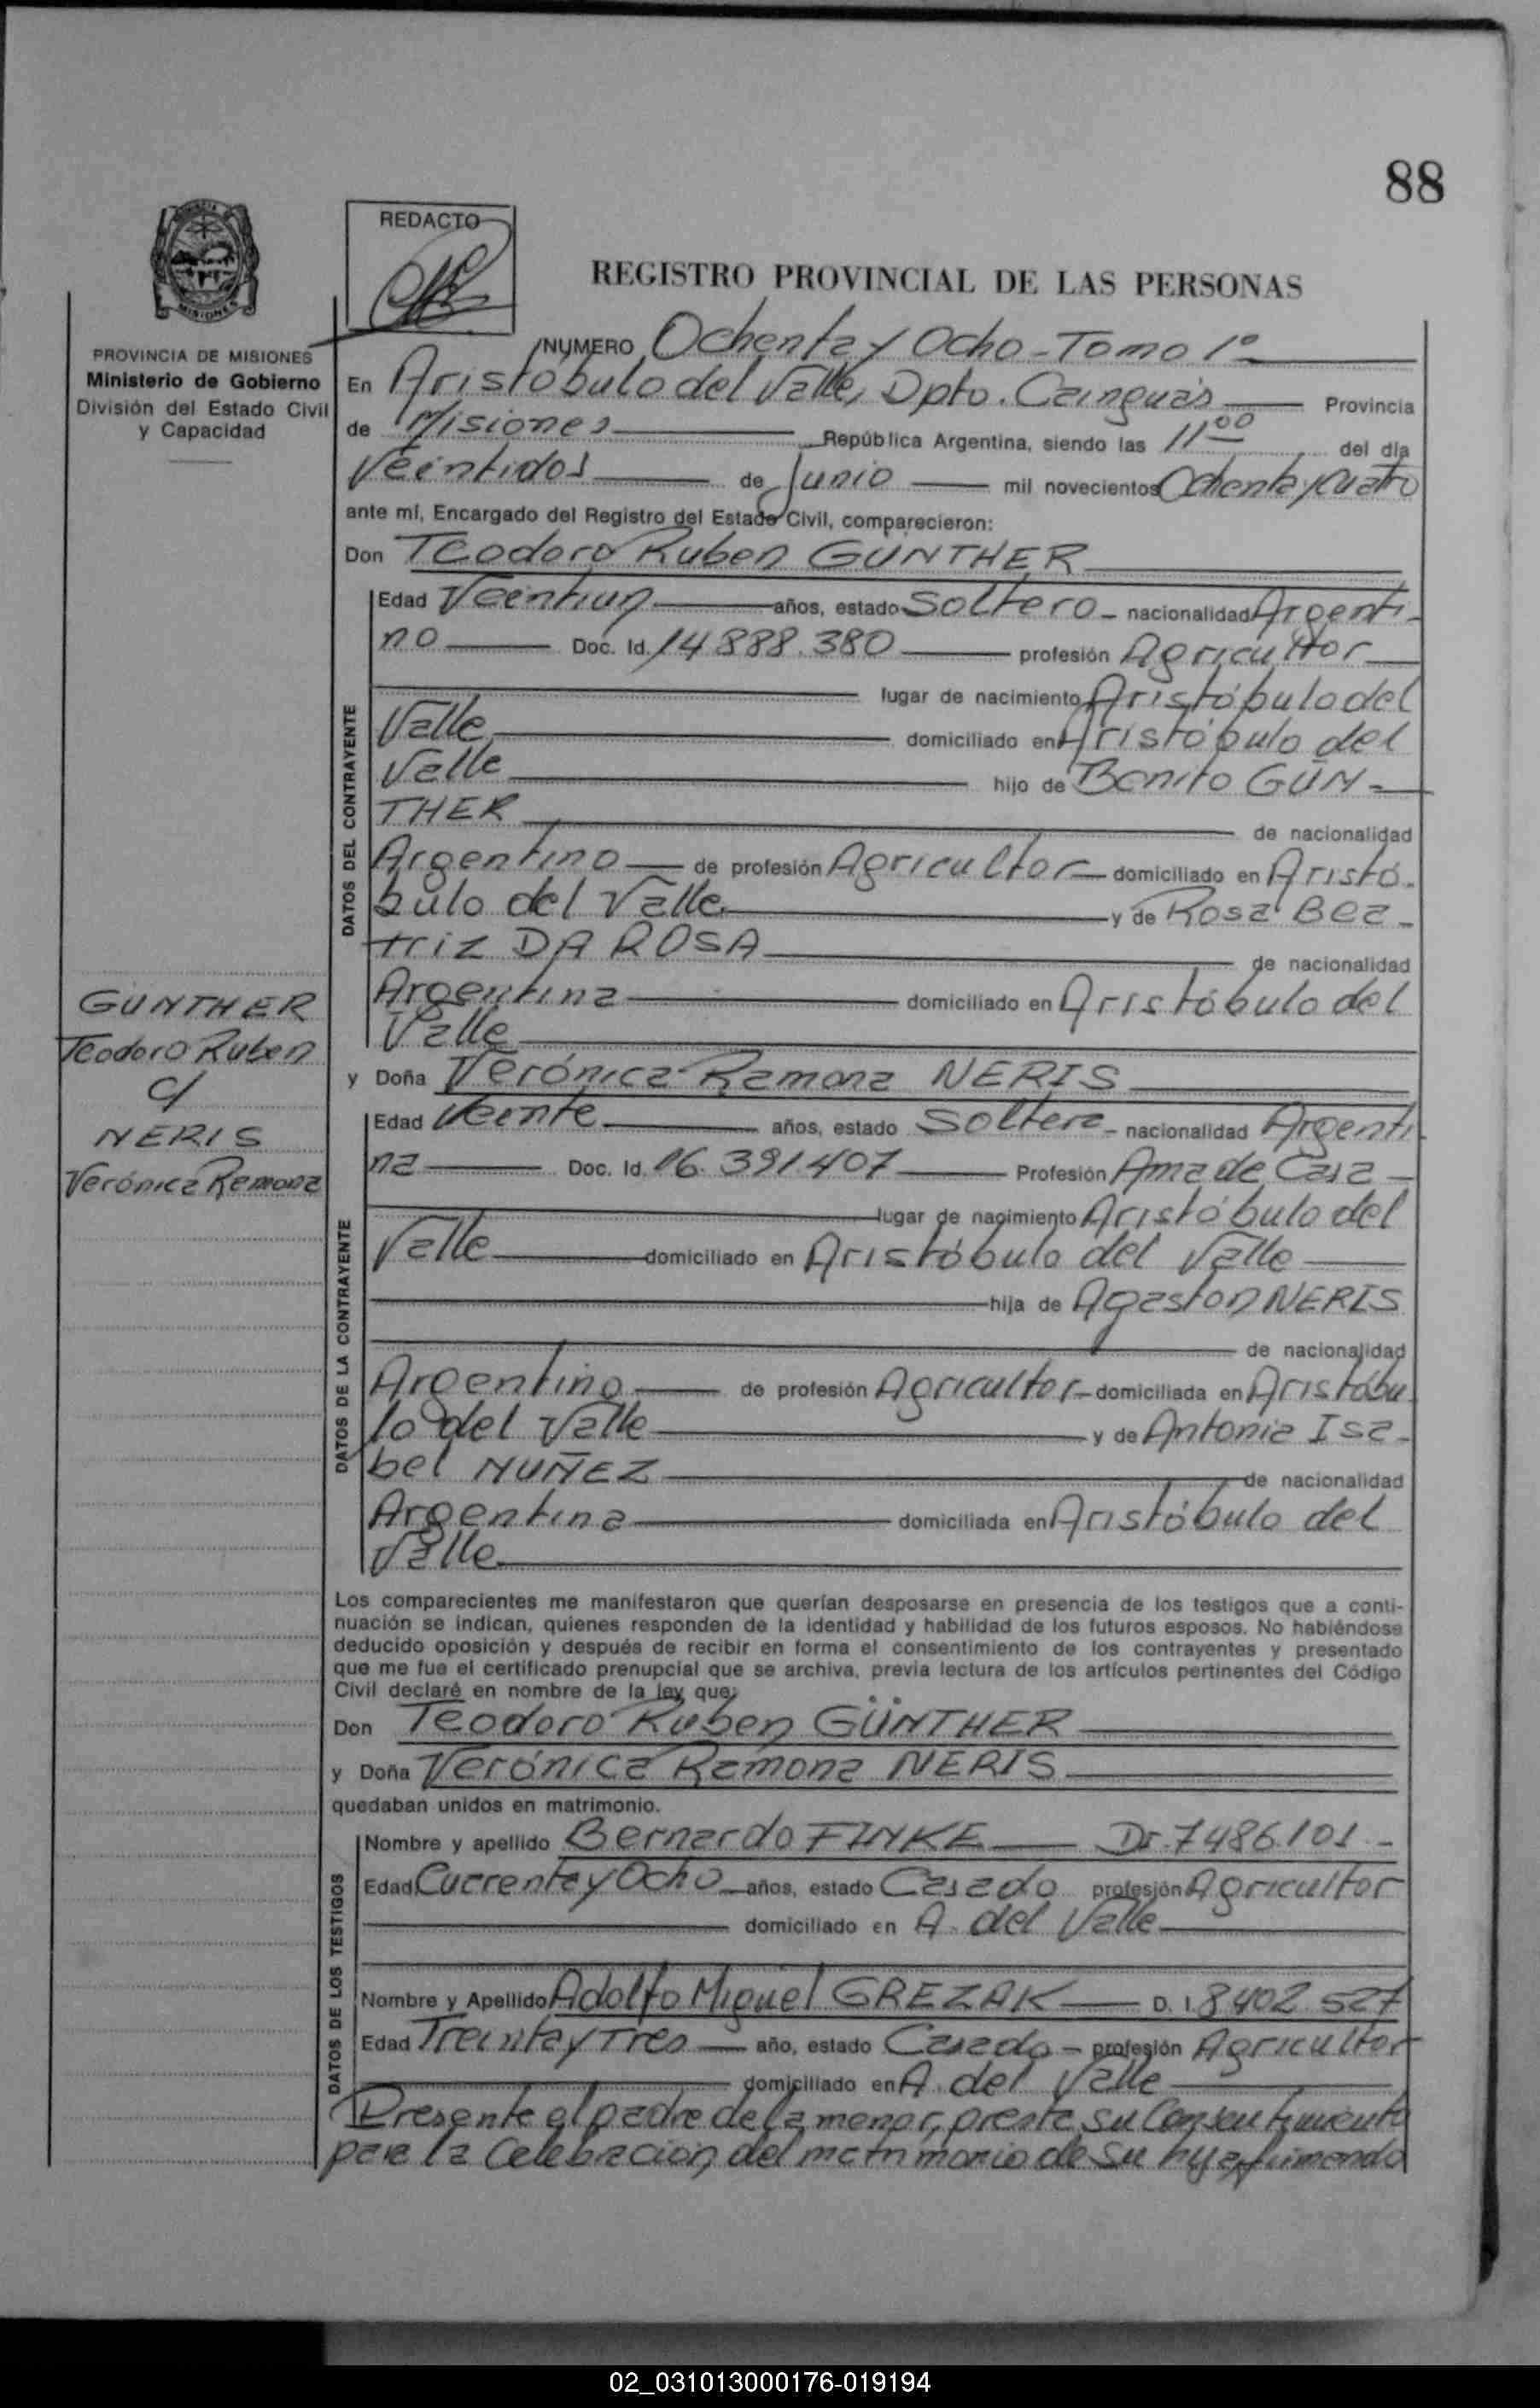 88
REDACTO
REGISTRO PROVINCIAL DE LAS PERSONAS
PROVINCIA DE MISIONES
Ministerio de Gobierno
División del Estado Civil
y Capacidad
NUMERO Ochenta y Ocho - Tomo 1º
En Aristóbulo del Valle, Dpto. Cainguás Provincia
de Misiones República Argentina, siendo las 11 00 del día
Veintidos de Junio mil novecientos Ochenta y Cuatro
ante mí, Encargado del Registro del Estado Civil, comparecieron:
Don Teodoro Ruben GÜNTHER
Edad Veintiun años, estado Soltero - nacionalidad Argenti-
no Doc. Id. 14.888.380 profesión Agricultor
lugar de nacimiento Aristóbulo del
Valle domiciliado en Aristóbulo del
Valle hijo de Benito GÜN-
THER de nacionalidad
Argentino de profesión Agricultor domiciliado en Aristó-
bulo del Valle y de Rosa Bea-
triz DA ROSA de nacionalidad
Argentina domiciliado en Aristóbulo del
Valle
DATOS DEL CONTRAYENTE
GUNTHER
Teodoro Ruben
c/
NERIS
Verónica Ramona
y Doña Verónica Ramona NERIS
Edad Veinte años, estado Soltera - nacionalidad Argenti
na Doc. Id. 16.391.407 Profesión Ama de Casa
lugar de nacimiento Aristóbulo del
Valle domiciliado en Aristóbulo del Valle
hija de Agaston NERIS
de nacionalidad
Argentino de profesión Agricultor domiciliada en Aristóbu
lo del Valle y de Antonia Isa-
bel NUÑEZ de nacionalidad
Argentina domiciliada en Aristóbulo del
Valle
DATOS DE LA CONTRAYENTE
Los comparecientes me manifestaron que querían desposarse en presencia de los testigos que a conti-
nuación se indican, quienes responden de la identidad y habilidad de los futuros esposos. No habiéndose
deducido oposición y después de recibir en forma el consentimiento de los contrayentes y presentado
que me fue el certificado prenupcial que se archiva, previa lectura de los artículos pertinentes del Código
Civil declaré en nombre de la ley que:
Don Teodoro Ruben GÜNTHER
y Doña Verónica Ramona NERIS
quedaban unidos en matrimonio.
Nombre y apellido Bernardo FINKE DI. 7486.101 -
Edad Cuarenta y Ocho años, estado Casado profesión Agricultor
domiciliado en A. del Valle
Nombre y Apellido Adolfo Miguel GREZAK D. I. 8402.527
Edad Treinta y Tres año, estado Casado - profesión Agricultor
domiciliado en A. del Valle
DATOS DE LOS TESTIGOS
Presente el padre de la menor, presta su Consentimiento
para la Celebración del matrimonio de su hija, firmando
02_031013000176-019194